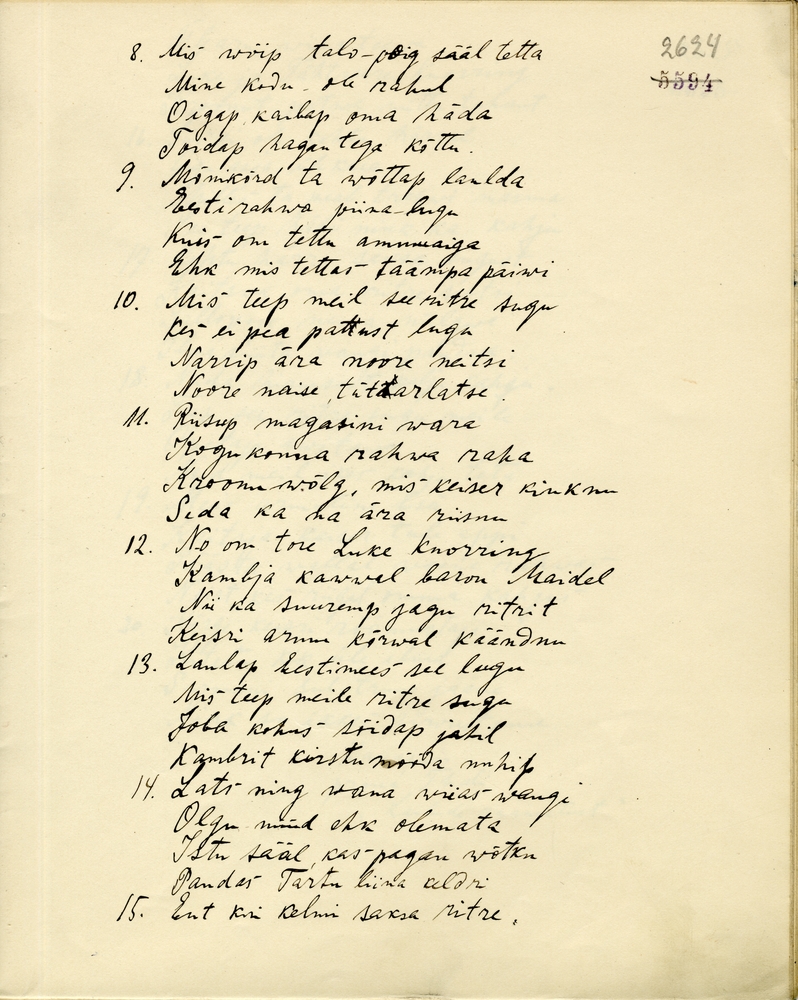 2624
5594
8. Mis wõip talo-poig sääl tetta
Mine kodu - ole rahul
Oigap, kaibap oma häda
Toidap hagantega kõttu.
9. Mõnikõrd ta wõttap laulda
Eesti rahwa piina-lugu
Kuis om tettu ammuaiga
Ehk mis tettas täämpa päiwi
10. Mis teep meil see ritre sugu
Kes ei pea pattust lugu
Narrip ära noore neitsi
Noore naise, tüttarlatse.
11. Riisup magasini wara
Kogukonna rahwa raha
Kroonu wõlg, mis keiser kinknu
Seda ka na ära riisnu
12. No om tore Luke Knorring
Kambja kawwal baron Maidel
Nii ka suuremp jagu ritrit
Keisri armu kõrwal käändnu
13. Laulap Eestimees see lugu
Mis teep meile ritre sugu
Joba kohus sõidap jahil
Kambrit kirstu mööda nuhip
14. Lats ning wana wiias wangi
Olgu müüd ehk olemata
Istu sääl, kas pagan wõtku
Pandas Tartu liina keldri
15. Ent kui kelmi saksa ritre,